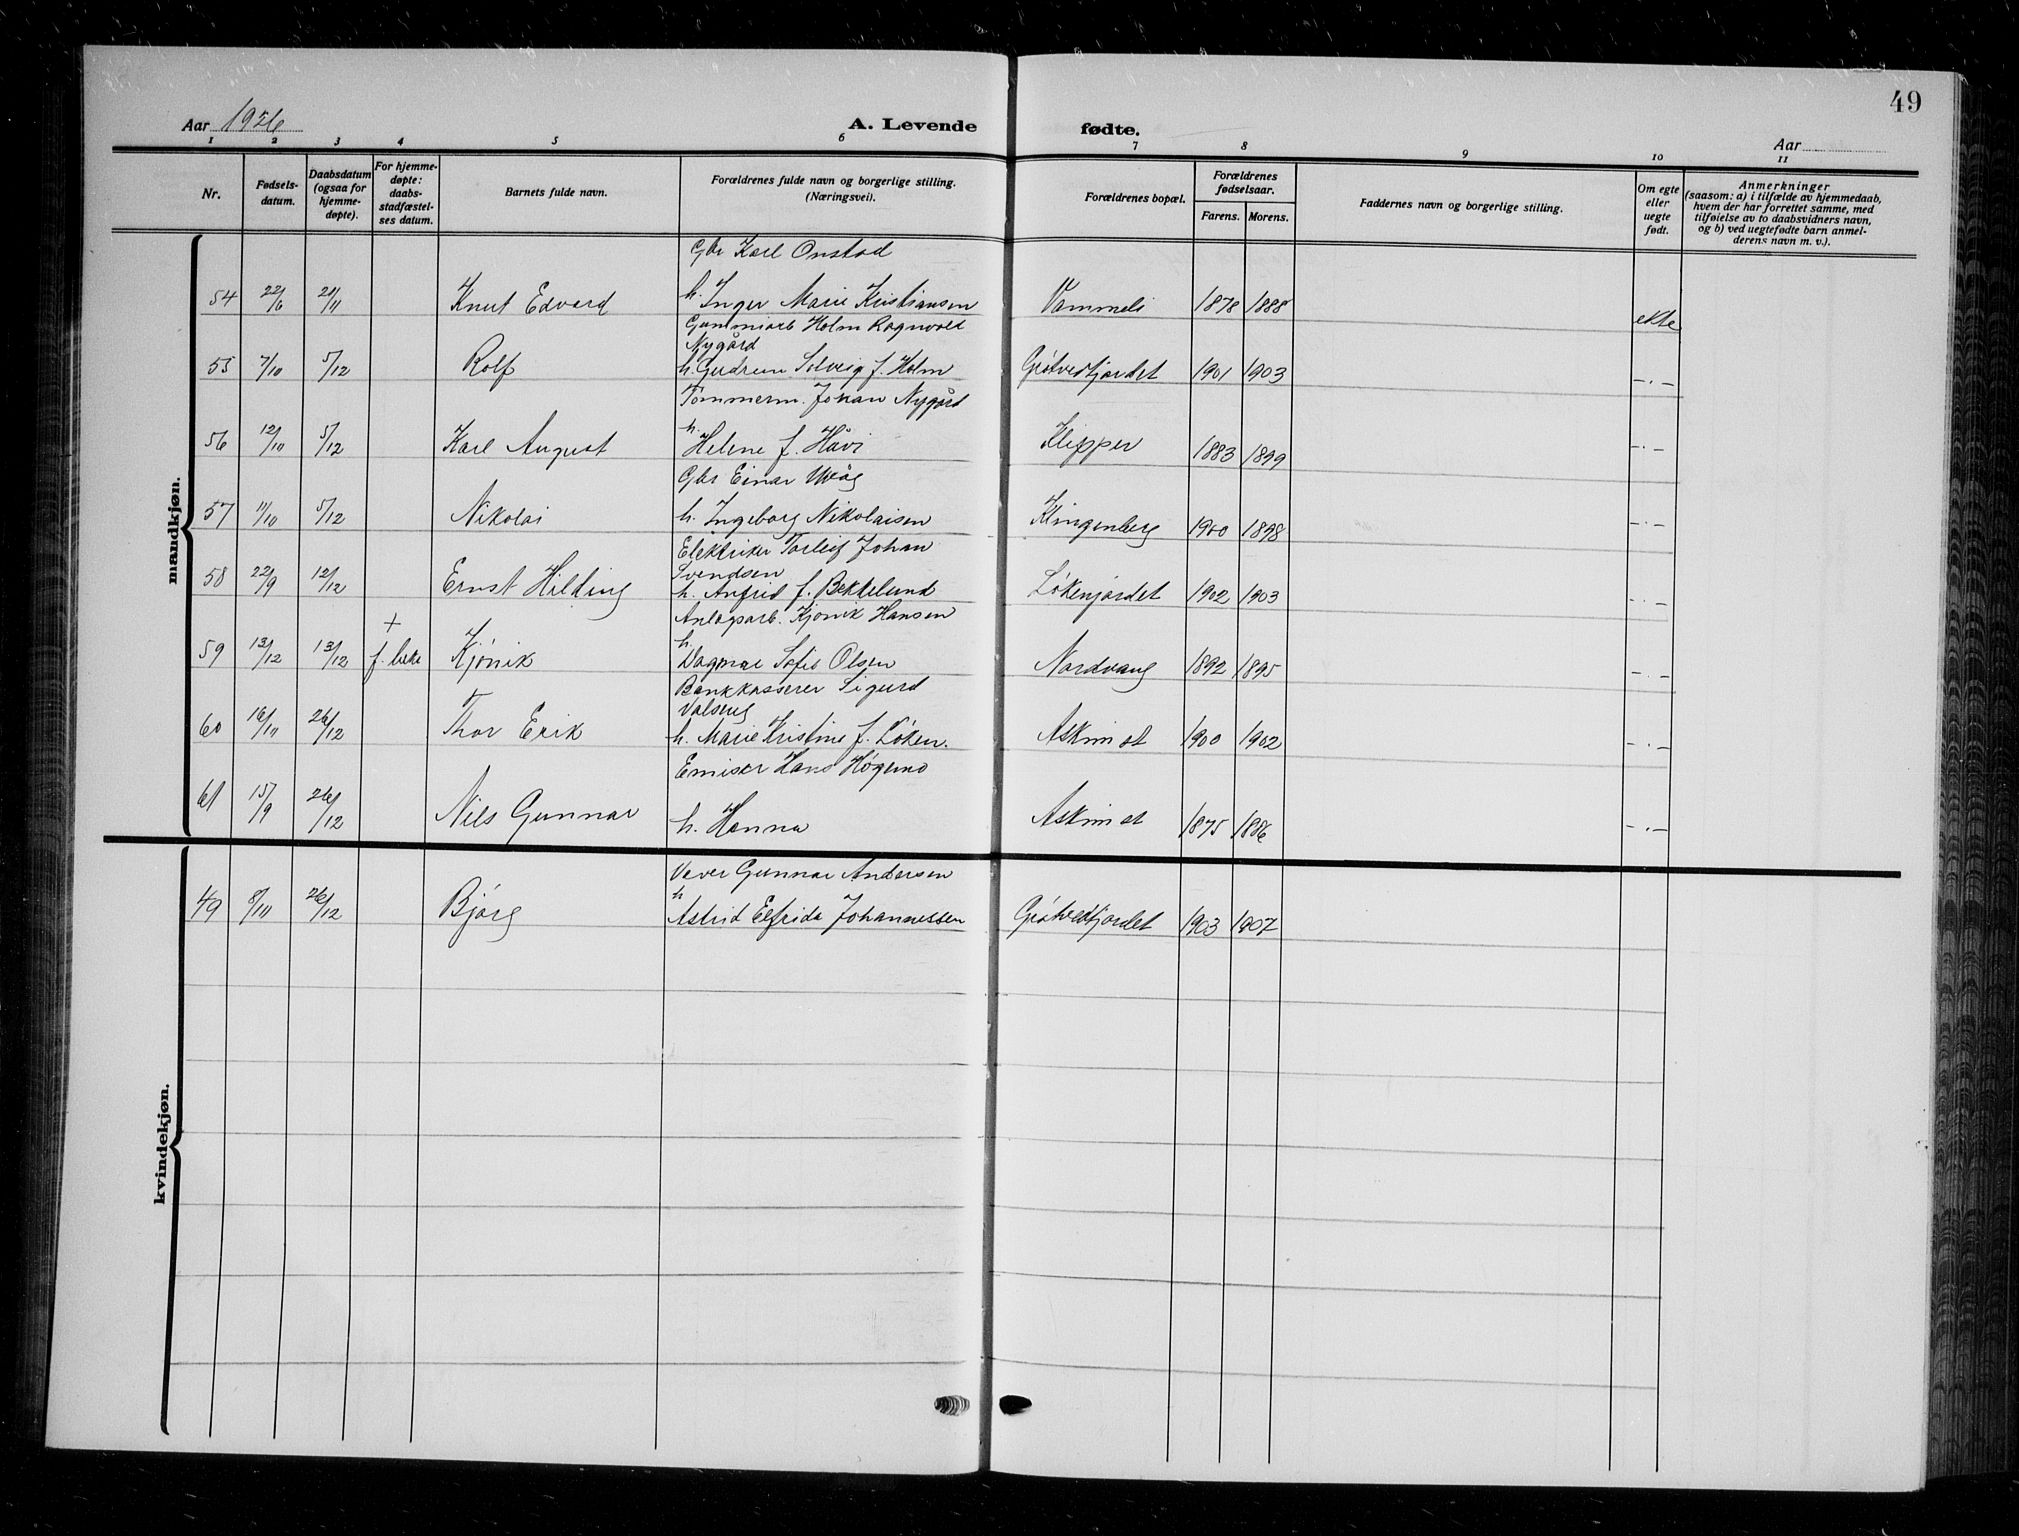 49
Aar 1926
A. Levende fødte.
Aar
1 2 3 4 5 6 7 8 9 10 11
Nr.
Fødsels-
datum.
Daabsdatum
(ogsaa for
hjemme-
døpte).
For hjemme-
døpte:
daabs-
stadfæstel-
ses datum.
Barnets fulde navn.
Forældrenes fulde navn og borgerlige stilling.
(Næringsvei).
Forældrenes bopæl.
Forældrenes
fødselsaar.
Farens. Morens.
Faddernes navn og borgerlige stilling.
Om egte
eller
uegte
født.
Anmerkninger
(saasom: a) i tilfælde av hjemmedaab,
hvem der har forrettet samme, med
tilføielse av to daabsvidners navn,
og b) ved uegtefødte barn anmel-
derens navn m. v.).
mandkjøn.
Gbr Karl Onstad
54 22/6 21/11 Knut Edvard h. Inger Marie Kristiansen Vammeli 1878 1888 ekte
Gummiarb Holm Ragnvald
Nygård
55 7/10 5/12 Rolf h. Gudrun Solveig f. Holm Grøtvedtjordet 1901 1903 -.-
Tømmerm. Johan Nygård
56 12/10 5/12 Karl August h. Helene f. Håvi Klipper 1883 1899 -.-
Gbr Einar Uvåg
57 11/10 5/12 Nikolai h. Ingeborg Nikolaisen Klingenberg 1900 1898 -.-
Elektriker Torleif Johan
Svendsen
58 22/9 12/12 Ernst Hilding h. Anfrid f. Bekkelund Løkenjordet 1902 1903 -.-
Anlægsarb. Kjønik Hansen
+
59 13/12 13/12 Kjønik h. Dagmar Sofie Olsen Nordvang 1892 1895 -.-
Bankkasserer Sigurd
60 16/11 26/12 Thor Erik h. Marie Kristine f. Løken. Askim st 1900 1902 -.-
Emisær Hans Høgemo
61 15/9 26/12 Nils Gunnar h. Hanna Askim st 1875 1886 -.-
kvindekjøn.
Vever Gunnar Andersen
49 8/11 26/12 Bjørg h Astrid Elfrida Johannessen Grøtvedtjordet 1903 1907